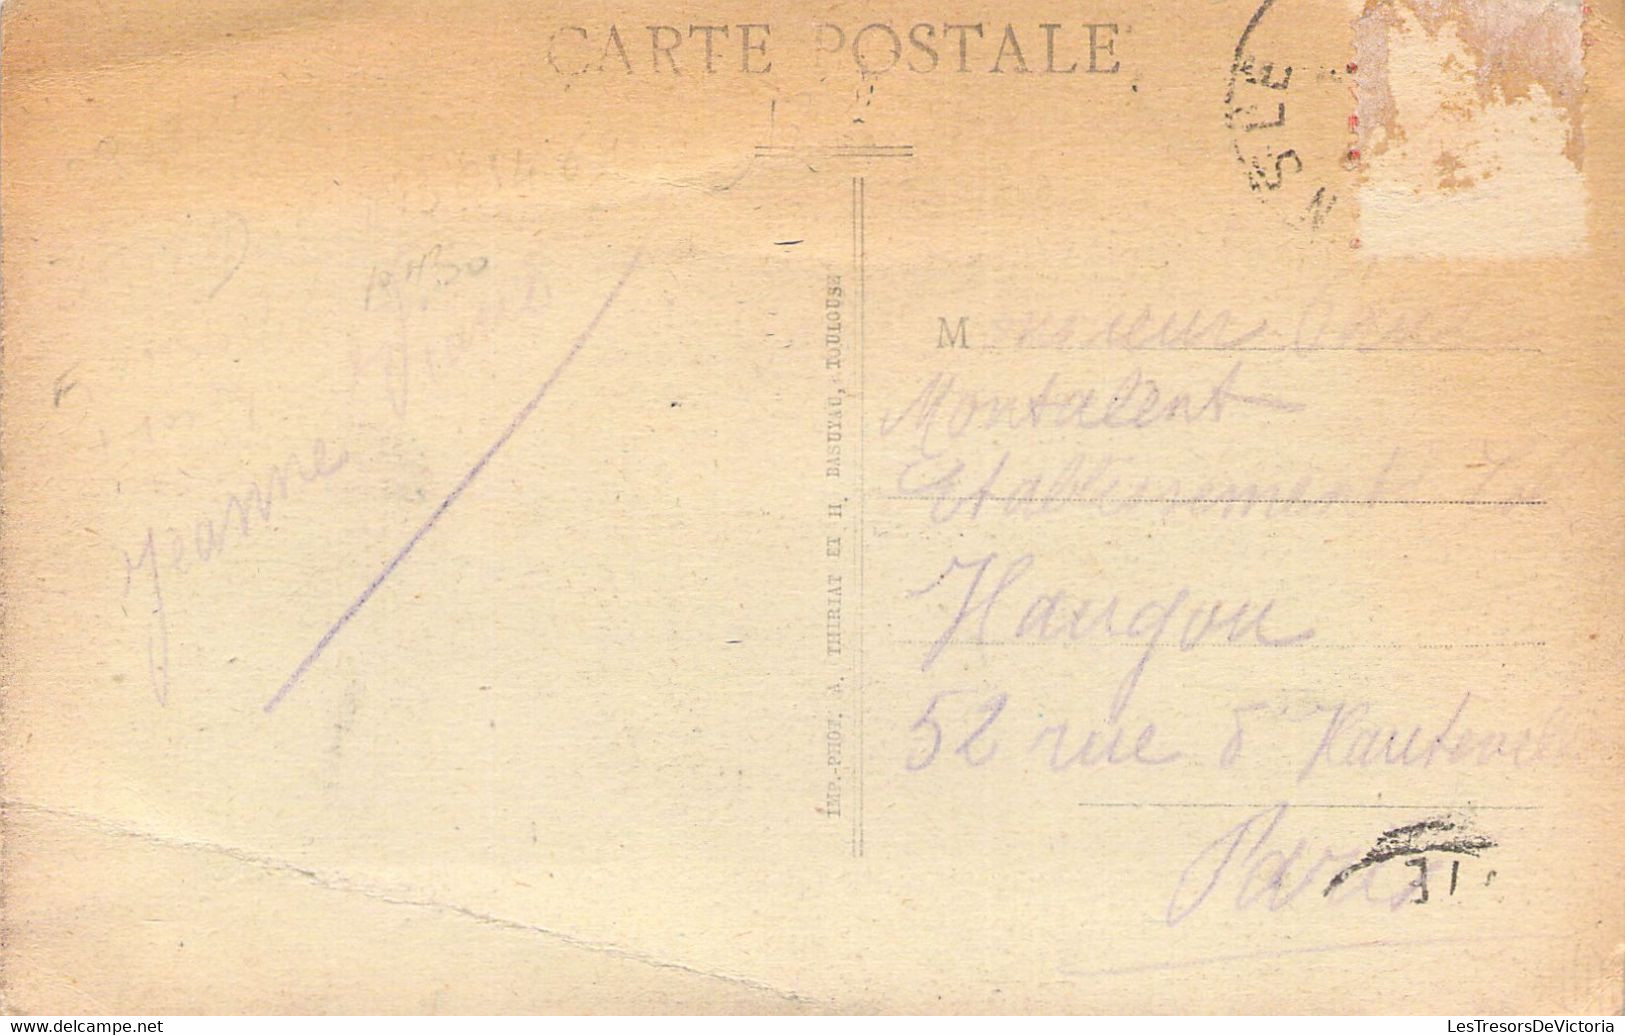 CARTE POSTALE
Jeanne
IMP.-PHOT. A. THIRIAT ET H. BASUYAU, TOULOUSE
Monsieur
Montalent
Etablissement
Haugou
52 rue d'Hauteville
Paris
LesTresorsDeVictoria